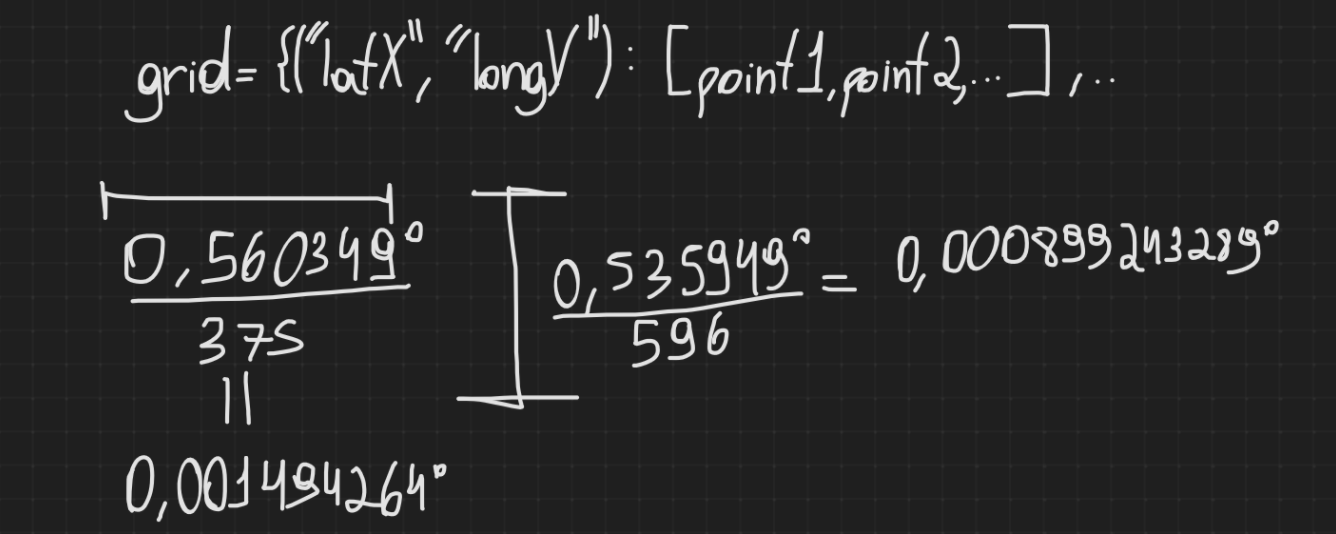 grid= {("latX", "longY"): [point1, point2, ...], ...
0,560349°
375
=
0,001494264°
0,535949° = 0,000899243289°
596